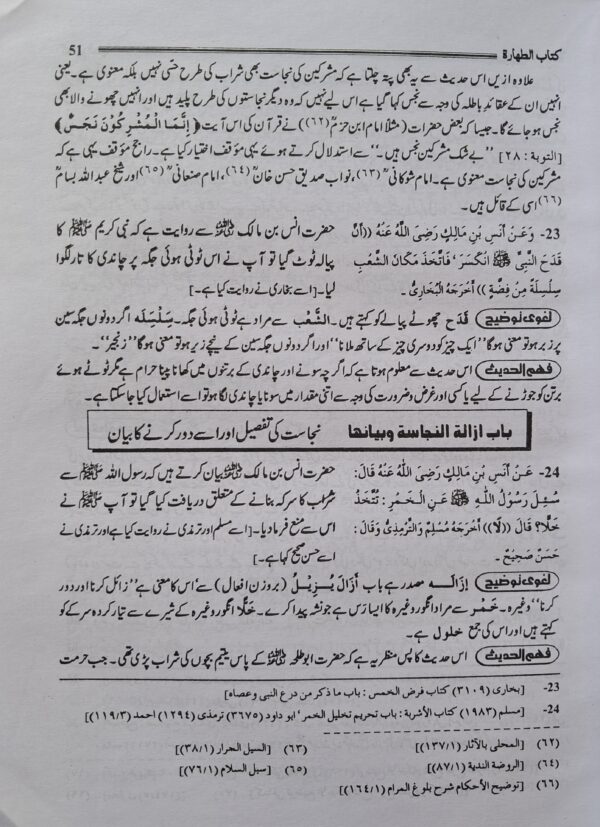 کتاب الطھارۃ 51
علاوہ ازیں اس حدیث سے یہ بھی پتہ چلتا ہے کہ مشرکین کی نجاست بھی شراب کی طرح حسّی نہیں بلکہ معنوی ہے۔ یعنی
انہیں ان کے عقائد باطلہ کی وجہ سے نجس کہا گیا ہے اس لیے نہیں کہ وہ دیگر نجاستوں کی طرح پلید ہیں اور انہیں چھونے والا بھی
نجس ہو جائے گا۔ جیسا کہ بعض حضرات (مثلاً امام ابن حزمؒ (٦٢)) نے قرآن کی اس آیت ﴿ إِنَّمَا الْمُشْرِكُوْنَ نَجَسٌ ﴾
[التوبة : ٢٨] ”بے شک مشرکین نجس ہیں۔“ سے استدلال کرتے ہوئے یہی مؤقف اختیار کیا ہے۔ راجح مؤقف یہی ہے کہ
مشرکین کی نجاست معنوی ہے۔ امام شوکانیؒ (٦٣)، نواب صدیق حسن خانؒ (٦٤)، امام صنعانیؒ (٦٥) اور شیخ عبداللہ بسامؒ
(٦٦) اسی کے قائل ہیں۔
23- وَعَنْ أَنَسِ بْنِ مَالِكٍ رَضِىَ اللَّهُ عَنْهُ ((أَنَّ
قَدَحَ النَّبِيِّ ﷺ انْكَسَرَ ‘ فَاتَّخَذَ مَكَانَ الشَّعْبِ
سِلْسِلَةً مِنْ فِضَّةٍ)) أَخْرَجَهُ الْبُخَارِيُّ ۔
حضرت انس بن مالک رضی اللہ عنہ سے روایت ہے کہ نبی کریم ﷺ کا
پیالہ ٹوٹ گیا تو آپ نے اس ٹوٹی ہوئی جگہ پر چاندی کا تار لگوا
لیا۔ [اسے بخاری نے روایت کیا ہے۔]
لغوی توضیح قَدَح چھوٹے پیالے کو کہتے ہیں۔ الشَّعْب سے مراد ہے ٹوٹی ہوئی جگہ۔ سِلْسِلَه اگر دونوں جگہ سین
پر زبر ہو تو معنی ہوگا ”ایک چیز کو دوسری چیز کے ساتھ ملانا“ اور اگر دونوں جگہ سین کے نیچے زیر ہو تو معنی ہوگا ”زنجیر“۔
فھم الحدیث اس حدیث سے معلوم ہوتا ہے کہ اگرچہ سونے اور چاندی کے برتنوں میں کھانا پینا حرام ہے مگر ٹوٹے ہوئے
برتن کو جوڑنے کے لیے یا کسی اور غرض و ضرورت کی وجہ سے اتنی مقدار میں سونا یا چاندی لگا ہو تو اسے استعمال کیا جا سکتا ہے۔
باب ازالة النجاسة وبیانھا نجاست کی تفصیل اور اسے دور کرنے کا بیان
24- عَنْ أَنَسِ بْنِ مَالِكٍ رَضِىَ اللَّهُ عَنْهُ قَالَ:
سُئِلَ رَسُولُ اللَّهِ ﷺ عَنِ الْخَمْرِ : تُتَّخَذُ
خَلًّا؟ قَالَ ((لَا)) أَخْرَجَهُ مُسْلِمٌ وَالتِّرْمِذِىُّ وَقَالَ :
حَسَنٌ صَحِيحٌ ۔
حضرت انس بن مالک رضی اللہ عنہ بیان کرتے ہیں کہ رسول اللہ سے
شراب کا سرکہ بنانے کے متعلق دریافت کیا گیا تو آپ ﷺ نے
اس سے منع فرما دیا۔ [اسے مسلم اور ترمذی نے روایت کیا ہے اور ترمذی نے
اسے حسن صحیح کہا ہے۔]
لغوی توضیح إِزَالَـــه مصدر ہے باب أَزَالَ يُزِيْلُ (بروزن افعال) سے‘ اس کا معنی ہے ”زائل کرنا اور دور
کرنا“ وغیرہ۔ خَمْر سے مراد انگور وغیرہ کا ایسا رس ہے جو نشہ پیدا کرے۔ خَلًّا انگور وغیرہ کے شیرے سے تیار کردہ سرکے کو
کہتے ہیں اور اس کی جمع خلول ہے۔
فھم الحدیث اس حدیث کا پس منظر یہ ہے کہ حضرت ابوطلحہ رضی اللہ عنہ کے پاس یتیم بچوں کی شراب پڑی تھی۔ جب حرمت
23- [بخاری (٣١٠٩) کتاب فرض الخمس : باب ما ذکر من درع النبی وعصاه]
24- [مسلم (١٩٨٣) کتاب الأشربة : باب تحریم تخلیل الخمر ‘ ابو داود (٣٦٧٥) ترمذی (١٢٩٤) احمد (١١٩/٣)]
(٦٢) [المحلی بالآثار (١٣٧/١)] (٦٣) [السیل الجرار (٣٨/١)]
(٦٤) [الروضة الندیة (٨٧/١)] (٦٥) [سبل السلام (٧٦/١)]
(٦٦) [توضیح الأحکام شرح بلوغ المرام (١٦٤/١)]